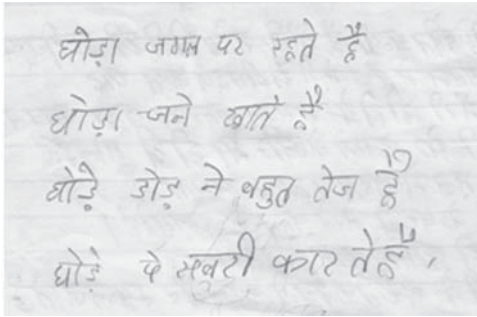 घोड़ा जगल पर रहते है
घोड़ा चने खाते है
घोड़े डोड़ ने बहुत तेज है
घोड़े पे सवुरी कार ते है,